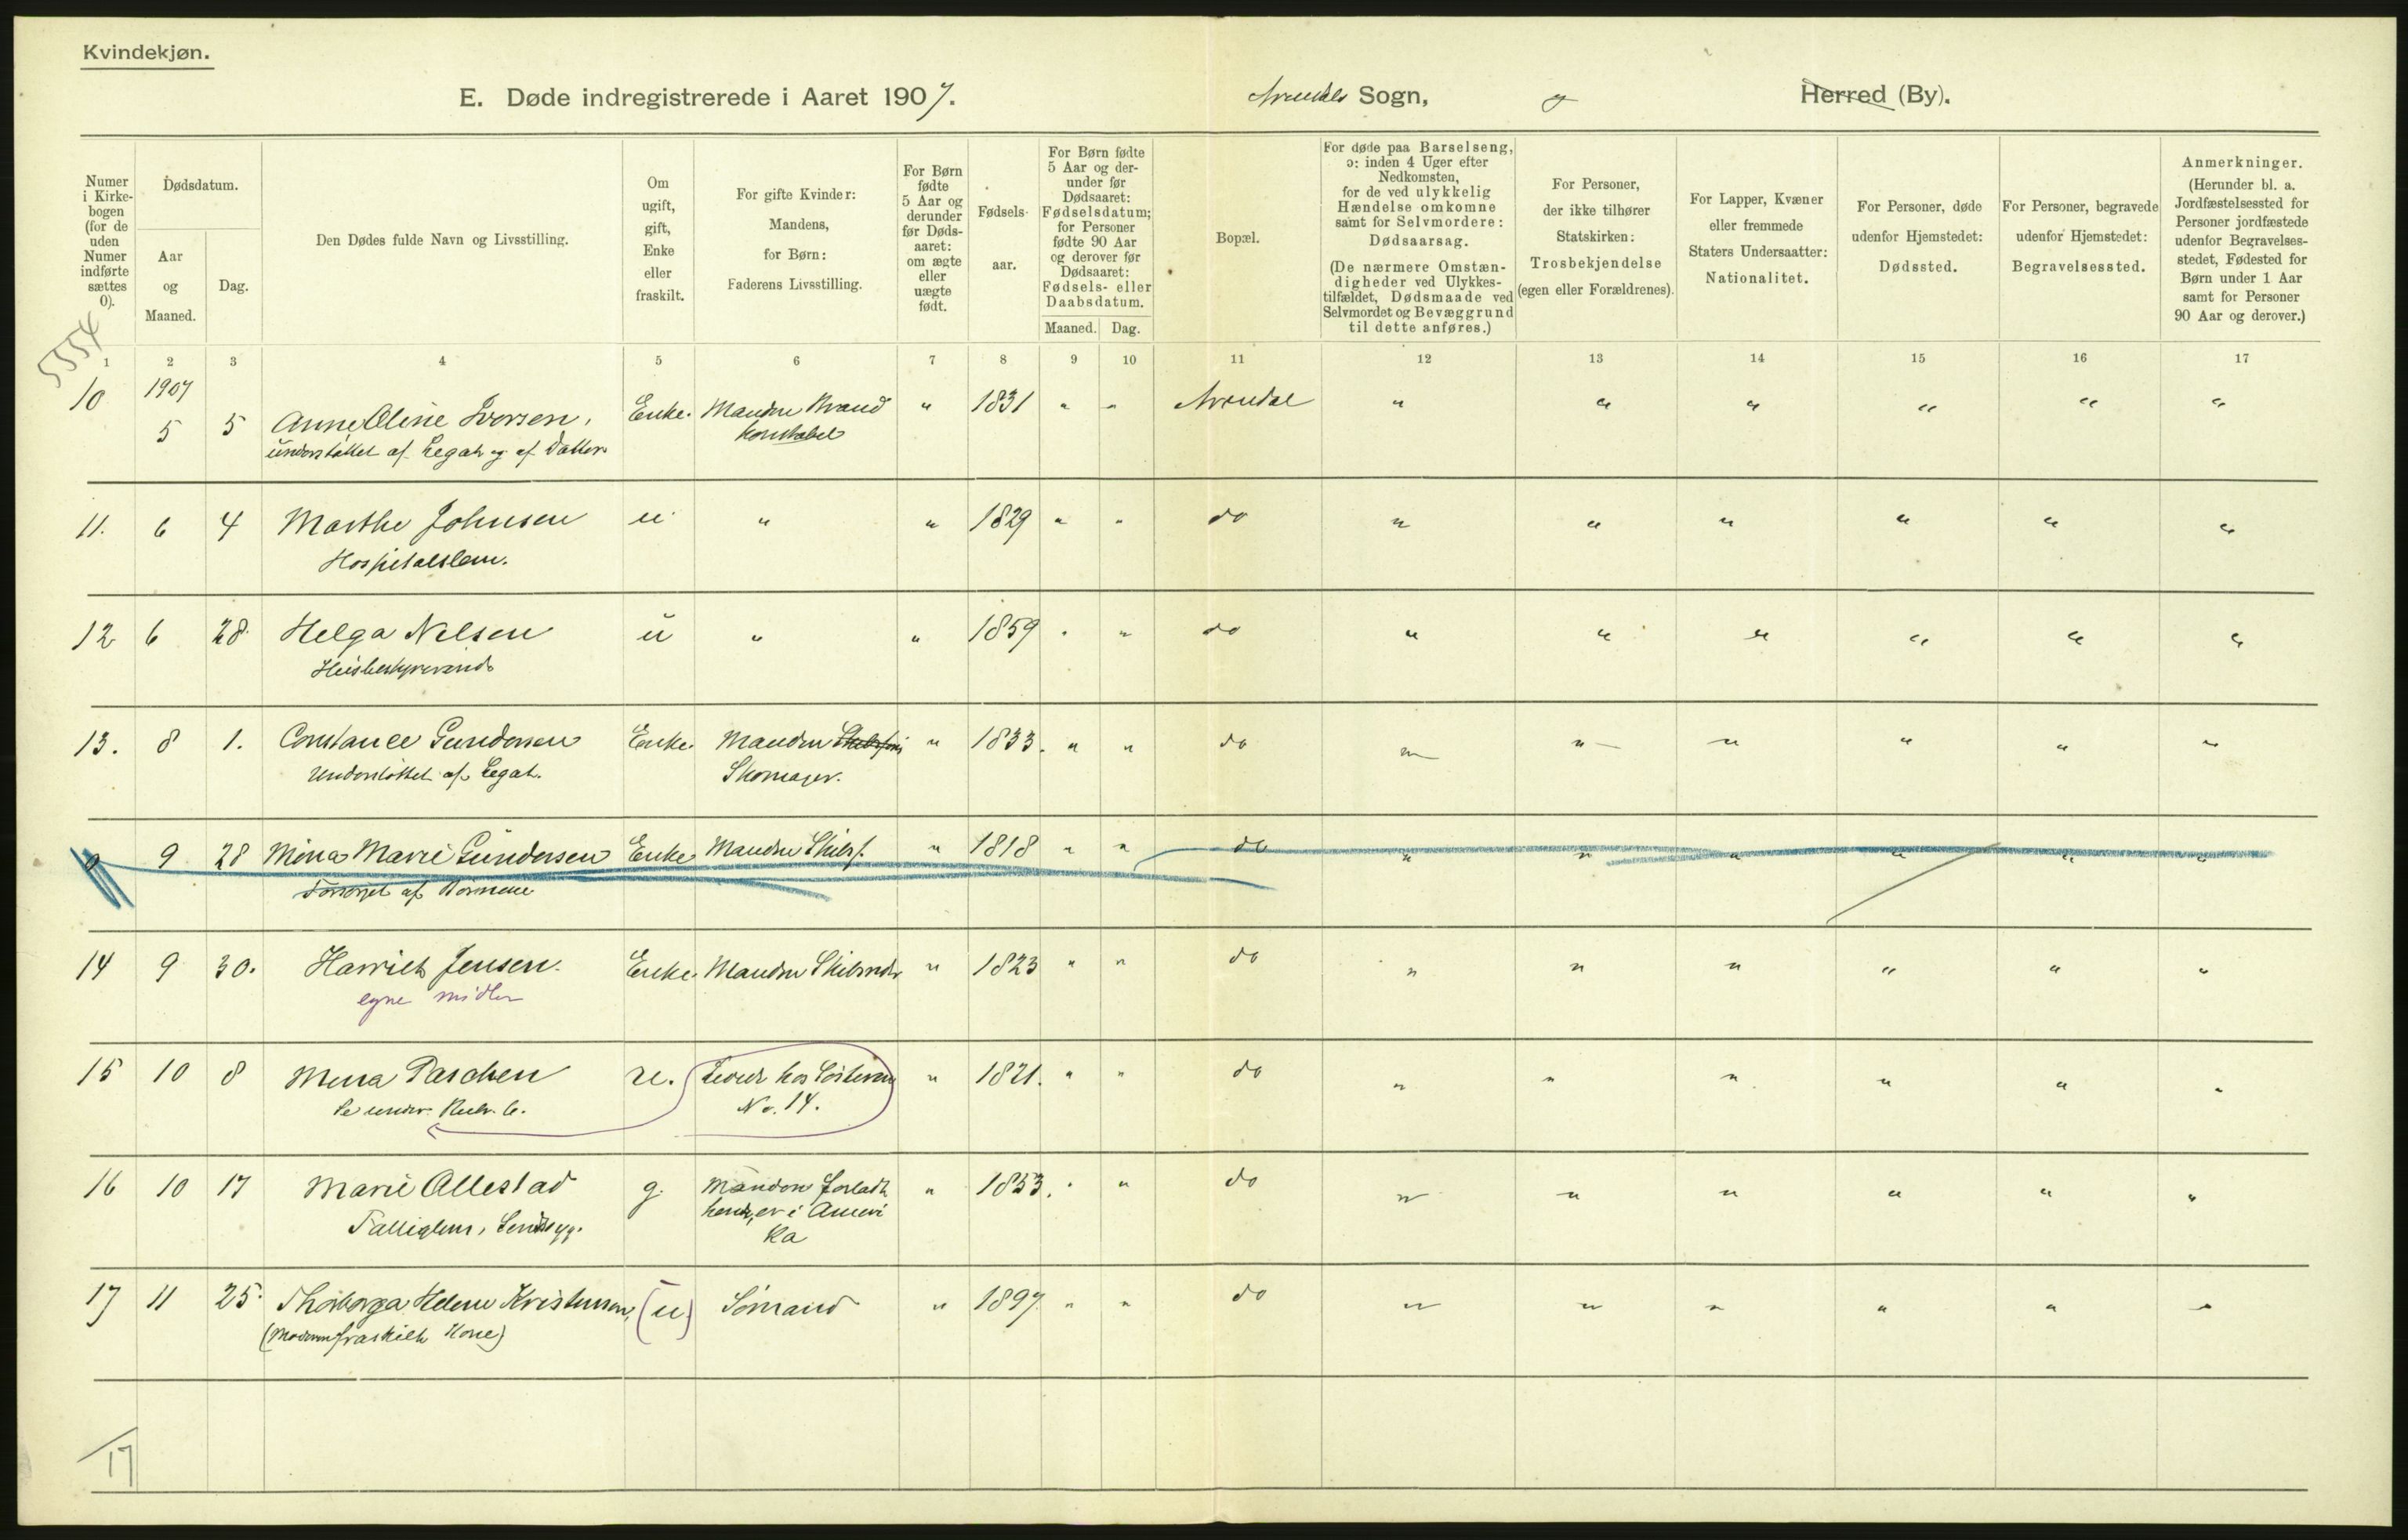 Kvindekjøn.
E. Døde indregistrerede i Aaret 1907. Arendals Sogn, Herred (By).
Numer i Kirke-bogen (for de uden Numer indførte sættes 0).
Dødsdatum.
Aar og Maaned.
Dag.
Den Dødes fulde Navn og Livsstilling.
Om ugift, gift, Enke eller fraskilt.
For gifte Kvinder: Mandens, for Børn: Faderens Livsstilling.
For Børn fødte 5 Aar og derunder før Døds-aaret: om ægte eller uægte født.
Fødsels-aar.
For Børn fødte 5 Aar og der-under før Dødsaaret: Fødselsdatum; for Personer fødte 90 Aar og derover før Dødsaaret: Fødsels- eller Daabsdatum.
Maaned. Dag.
Bopæl.
For døde paa Barselseng, ɔ: inden 4 Uger efter Nedkomsten, for de ved ulykkelig Hændelse omkomne samt for Selvmordere: Dødsaarsag.
(De nærmere Omstæn-digheder ved Ulykkes-tilfældet, Dødsmaade ved Selvmordet og Bevæggrund til dette anføres.)
For Personer, der ikke tilhører Statskirken: Trosbekjendelse (egen eller Forældrenes).
For Lapper, Kvæner eller fremmede Staters Undersaatter: Nationalitet.
For Personer, døde udenfor Hjemstedet: Dødssted.
For Personer, begravede udenfor Hjemstedet: Begravelsessted.
Anmerkninger.
(Herunder bl. a. Jordfæstelsessted for Personer jordfæstede udenfor Begravelses-stedet, Fødested for Børn under 1 Aar samt for Personer 90 Aar og derover.)
5554
1 2 3 4 5 6 7 8 9 10 11 12 13 14 15 16 17
10 1907 5 5 Anne Oline Iversen, Enke. Manden Brand " 1831 " " Arendal " " " " " "
understøttet af Legat og af Datter konstabel
11. 6 4 Marthe Johnsen u " " 1829 " " do " " " " " "
Hospitalslem.
12 6 28 Helga Nilsen u " " 1859 " " do " " " " " "
Husbestyrerinde
13. 8 1. Constance Gundersen Enke. Manden " 1833. " " do " " " " " "
Understøttet af Legat. Skomager.
0 9 28 Mina Marie Gundersen Enke Manden Skibsf. " 1818 " " do " " " " " "
Forsørget af Børnene
14 9 30. Harriet Jensen. Enke. Manden Skibsreder " 1823 " " do " " " " " "
egne midler
15 10 8 Mena Paschen u. Lever hos Søsteren " 1821. " " do " " " " " "
No. 14.
16 10 17 Marie Ollestad g. Manden forladt " 1853. " " do " " " " " "
Fattiglem, Sindssyg. hende, er i Ameri
ka
17 11 25. Thorborga Helene Kristensen, (u) Sømand " 1897 " " do " " " " " "
(Moderen fraskilt Kone)
17